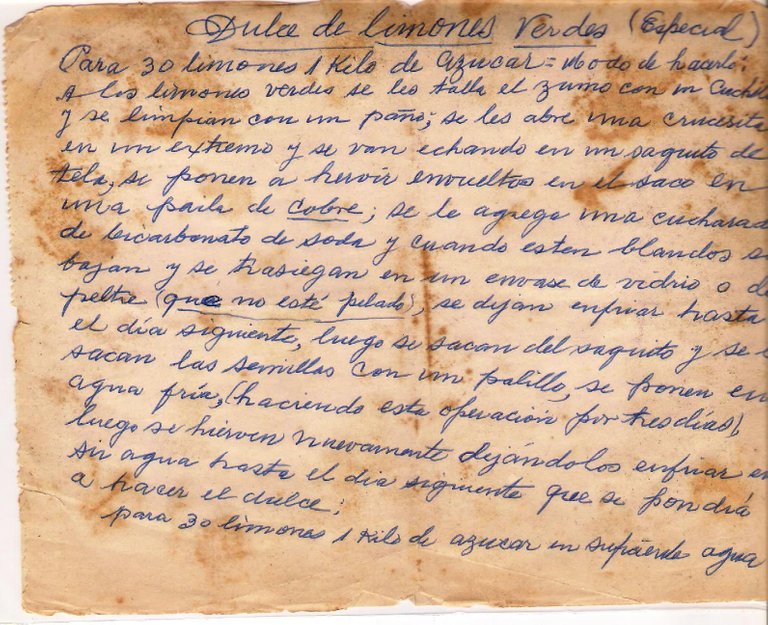 Dulce de limones Verdes (Especial)
Para 30 limones 1 Kilo de azucar = Modo de hacerlo:
A los limones verdes se les talla el zumo con un Cuchill
y se limpian con un paño; se les abre una crucesita
en un extremo y se van echando en un saquito de
tela, se ponen a hervir envueltos en el saco en
una paila de cobre; se le agrega una cucharad
de bicarbonato de soda y cuando esten blandos s
bajan y se trasiegan en un envase de vidrio o d
peltre (que no esté pelado), se dejan enfriar hasta
el día siguiente, luego se sacan del saquito y se l
sacan las semillas con un palillo, se ponen en
agua fría, (haciendo esta operación por tres días),
luego se hierven nuevamente dejándolos enfriar en
su agua hasta el día siguiente que se pondrá
a hacer el dulce;
para 30 limones 1 Kilo de azucar en suficiente agua